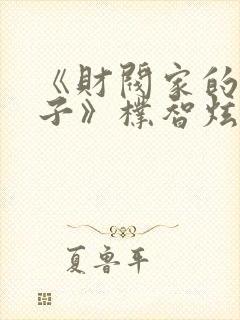 《財閥家的
子》樸智炫
夏鲁平